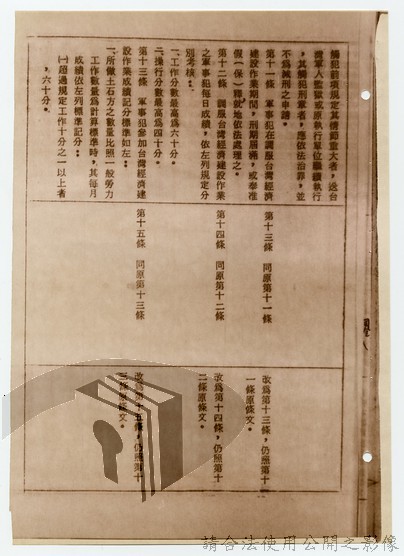 觸犯前項規定其情節重大者，送台
灣軍人監獄或原執行單位繼續執行
，其觸犯刑章者，應依法治罪，並
不為減刑之申請。
第十一條　軍事犯在調服台灣經濟
建設作業期間，刑期屆滿，或奉准
假（保）釋就地依法處理之。
第十二條　調服台灣經濟建設作業
之軍事犯每日成績，依左列規定分
別考核：
一、工作分數最高為六十分。
二、操行分數最高為四十分。
第十三條　軍事犯參加台灣經濟建
設作業成績記分標準如左：
一、所做土石方之數量比照一般勞力
工作數量為計算標準時，其每月
成績依左列標準記分：
㈠超過規定工作十分之一以上者
，六十分。
第十三條　同原第十一條
第十四條　同原第十二條
第十五條　同原第十三條
改為第十三條，仍照第十
一條原條文。
改為第十四條，仍照第十
二條原條文。
改為第十五條，仍照第十
三條原條文。
請合法使用公開之影像